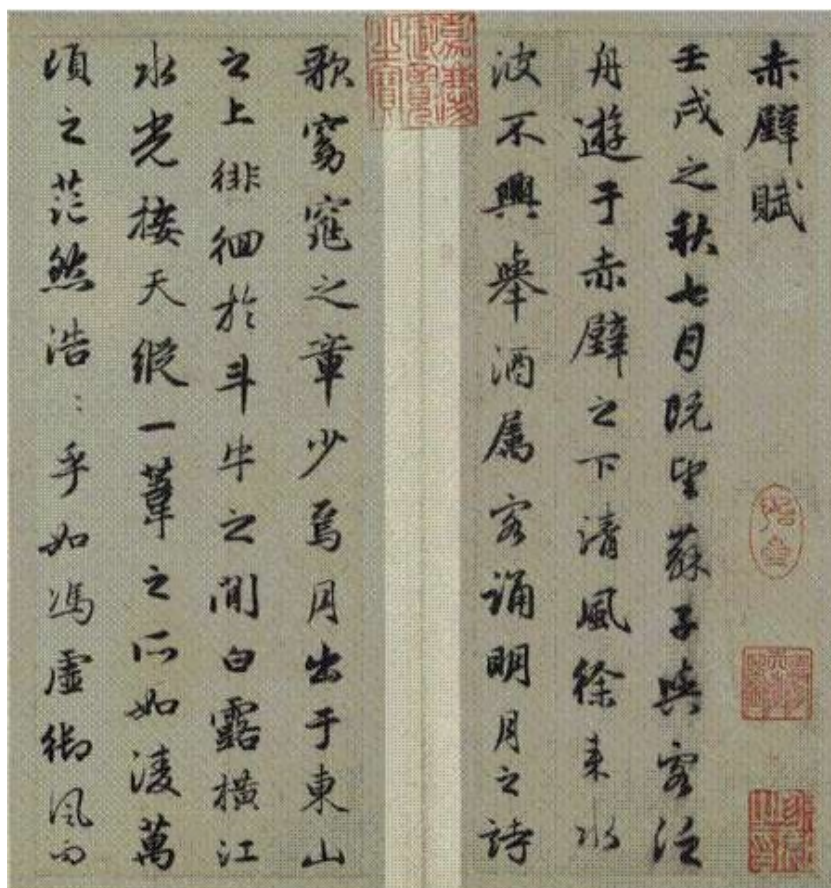 赤壁賦
壬戌之秋七月既望蘇子與客泛
舟遊于赤壁之下清風徐来水
波不興舉酒属客誦明月之詩
歌窈窕之章少焉月出于東山
之上徘徊於斗牛之間白露横江
水光接天縱一葦之所如凌萬
頃之茫然浩〻乎如馮虚御風而
嘉慶御覽之寶